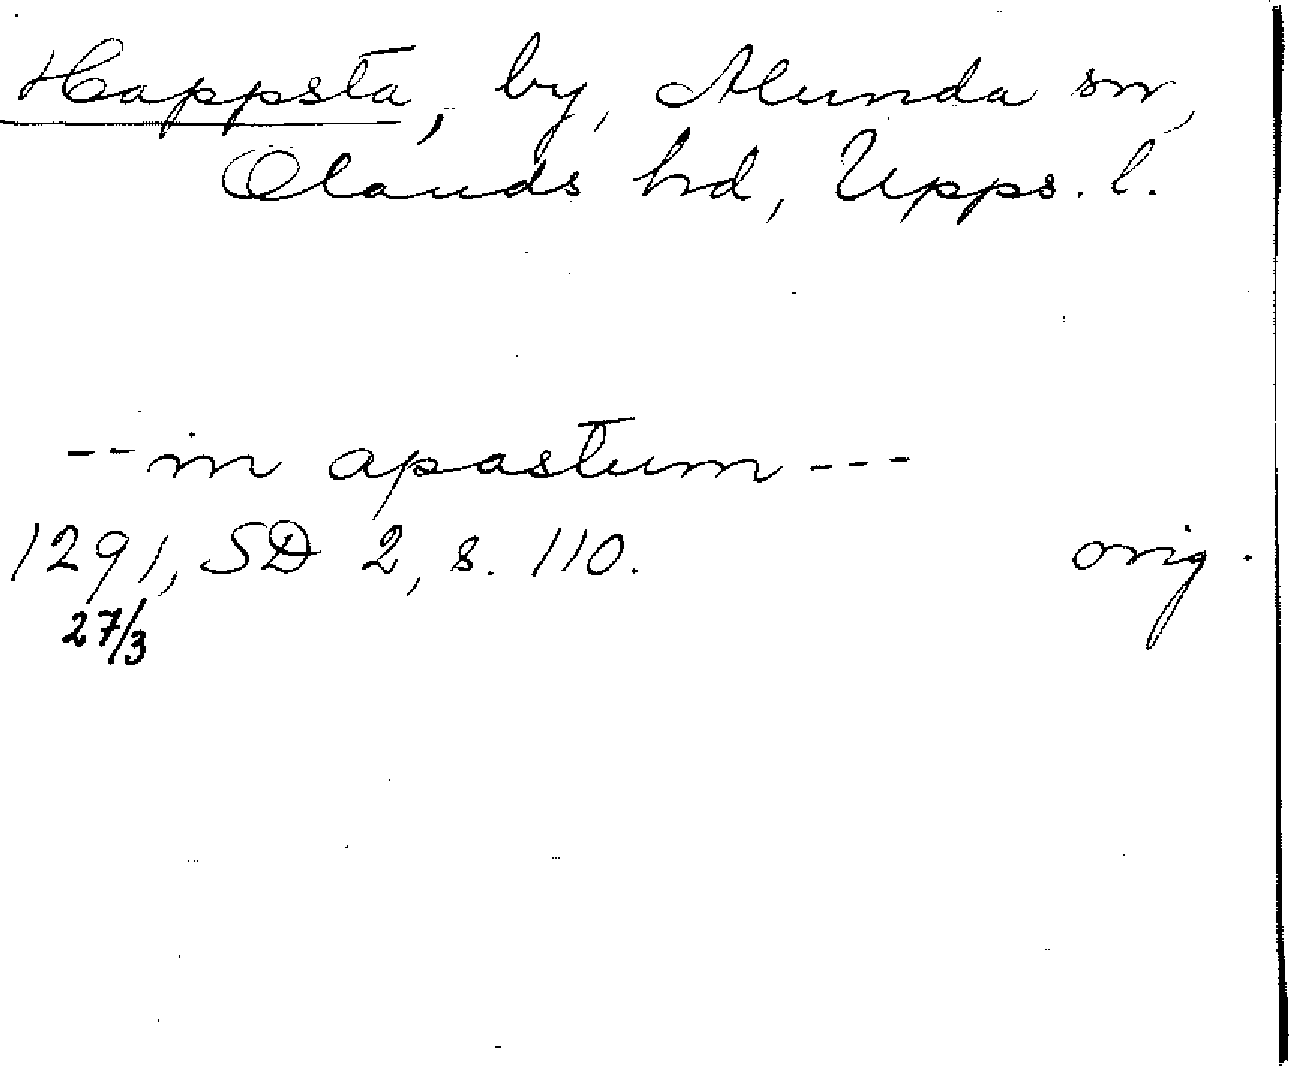 Happsta, by, Alunda sn,
Olands hd, Upps. l.
-- in apastum ---
1291, SD 2, s. 110. orig.
27/3